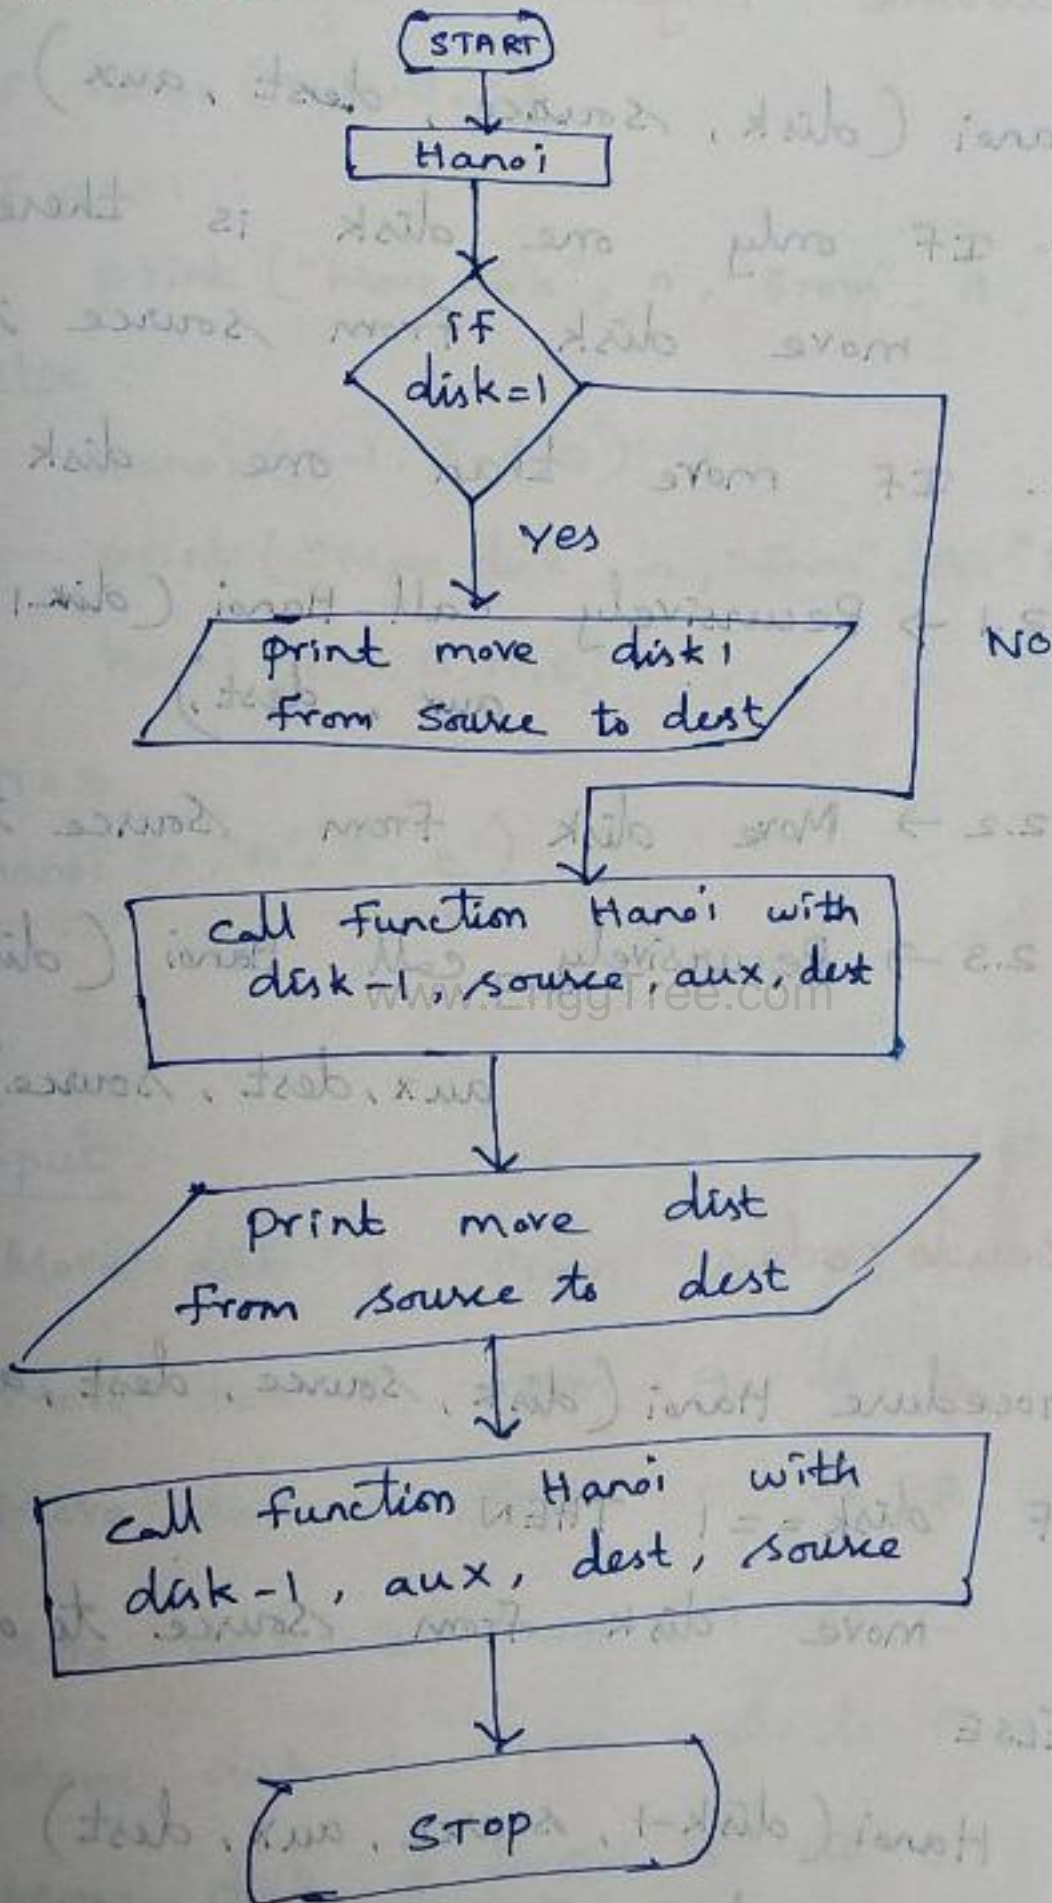 START
Hanoi
if
disk=1
Yes
print move disk 1
from source to dest
NO
call function Hanoi with
disk-1, source, aux, dest
www.EnggTree.com
print move dist
from source to dest
call function Hanoi with
disk-1, aux, dest, source
STOP